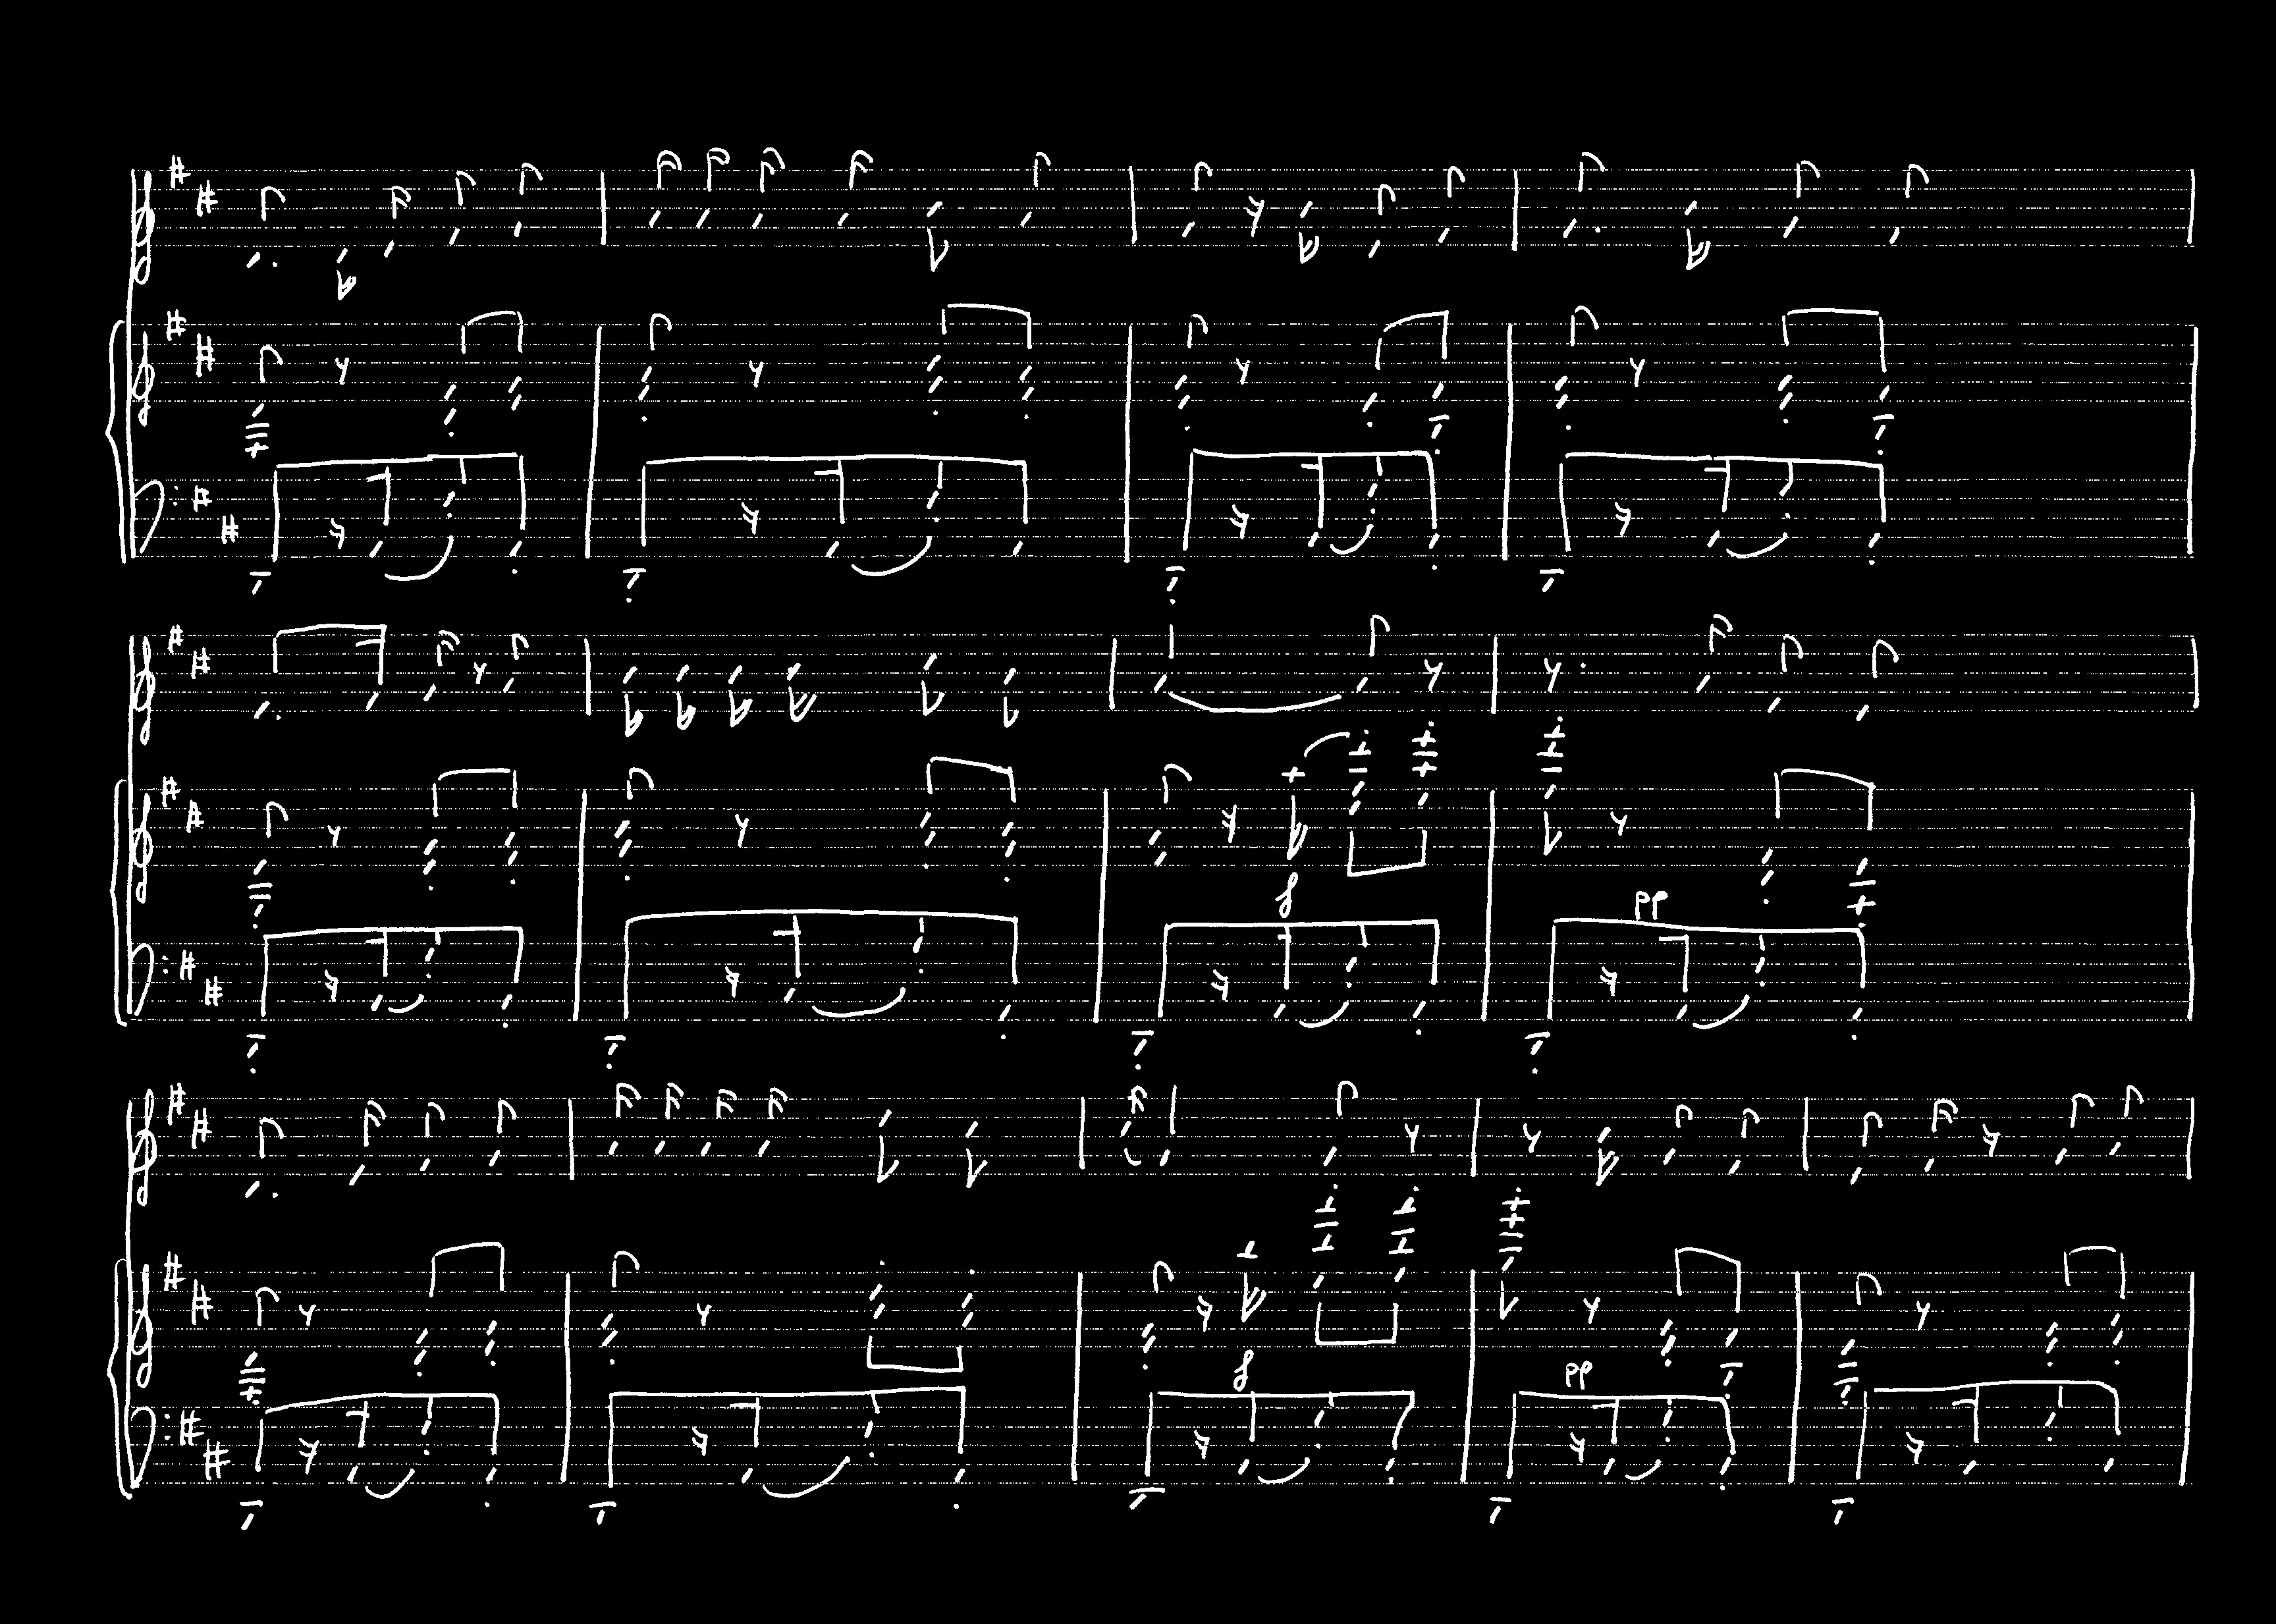 f
pp
f
pp